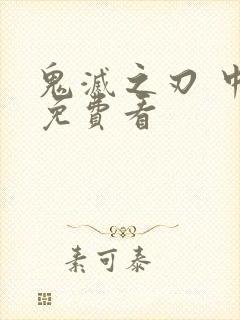 鬼滅之刃 中
免費看
素可泰